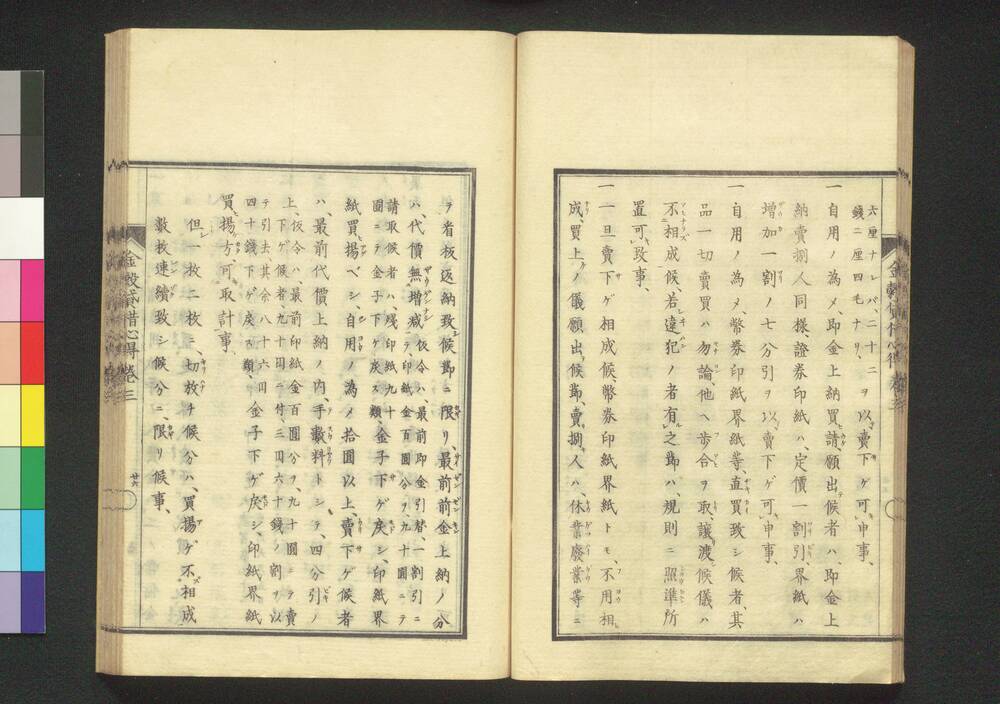 六厘ナレバ、二十二ヲ以賣下ゲ可申事、
錢二厘四毛ナリ、
一自用ノ為メ、即金上納買請願出候者ハ、即金上
納賣捌人同樣、證券印紙ハ、定價一割引、界紙ハ
增加一割ノ七分引ヲ以賣下ゲ可申事、
一自用ノ為メ、幣券印紙界紙等、直買致シ候者、其
品一切賣買ハ勿論、他ヘ歩合ヲ取讓渡候儀ハ
不相成候、若違犯ノ者有之節ハ、規則ニ照準所
置可致事、
一一旦賣下ゲ相成候幣券印紙界紙トモ、不用相
成、買上ノ儀願出候節、賣捌人ハ、休業廢業等ニ
テ省板返納致候節ニ限リ、最前前金上納ノ分
ハ、代價無增減、仮令ハ、最前即金引替、一割引ニ
テ、印紙金百圓分ヲ、九十圓ニテ
請取候者ハ、殘印紙九十
圓ニテ金子下ゲ戻ス類、金子下ゲ戻シ、印紙界
紙買揚ベシ、自用ノ為メ拾圓以上、賣下ゲ候者
ハ、最前代價上納ノ内、手數料トシテ、四分引ノ
上、仮令ハ、最前印紙金百圓分ヲ、九十圓ニテ賣
下ゲ候者、九十圓ニ付、三円六十錢ノ割ヲ以
テ引去、其余八十六円
四十錢下ゲ戻ス類、金子下ゲ戻シ、印紙界紙
買揚方可取計事、
但一枚二枚ニ切放チ候分ハ、買揚ゲ不相成
數枚連續致シ候分ニ、限リ候事、
金穀貸借心得卷三
廿六